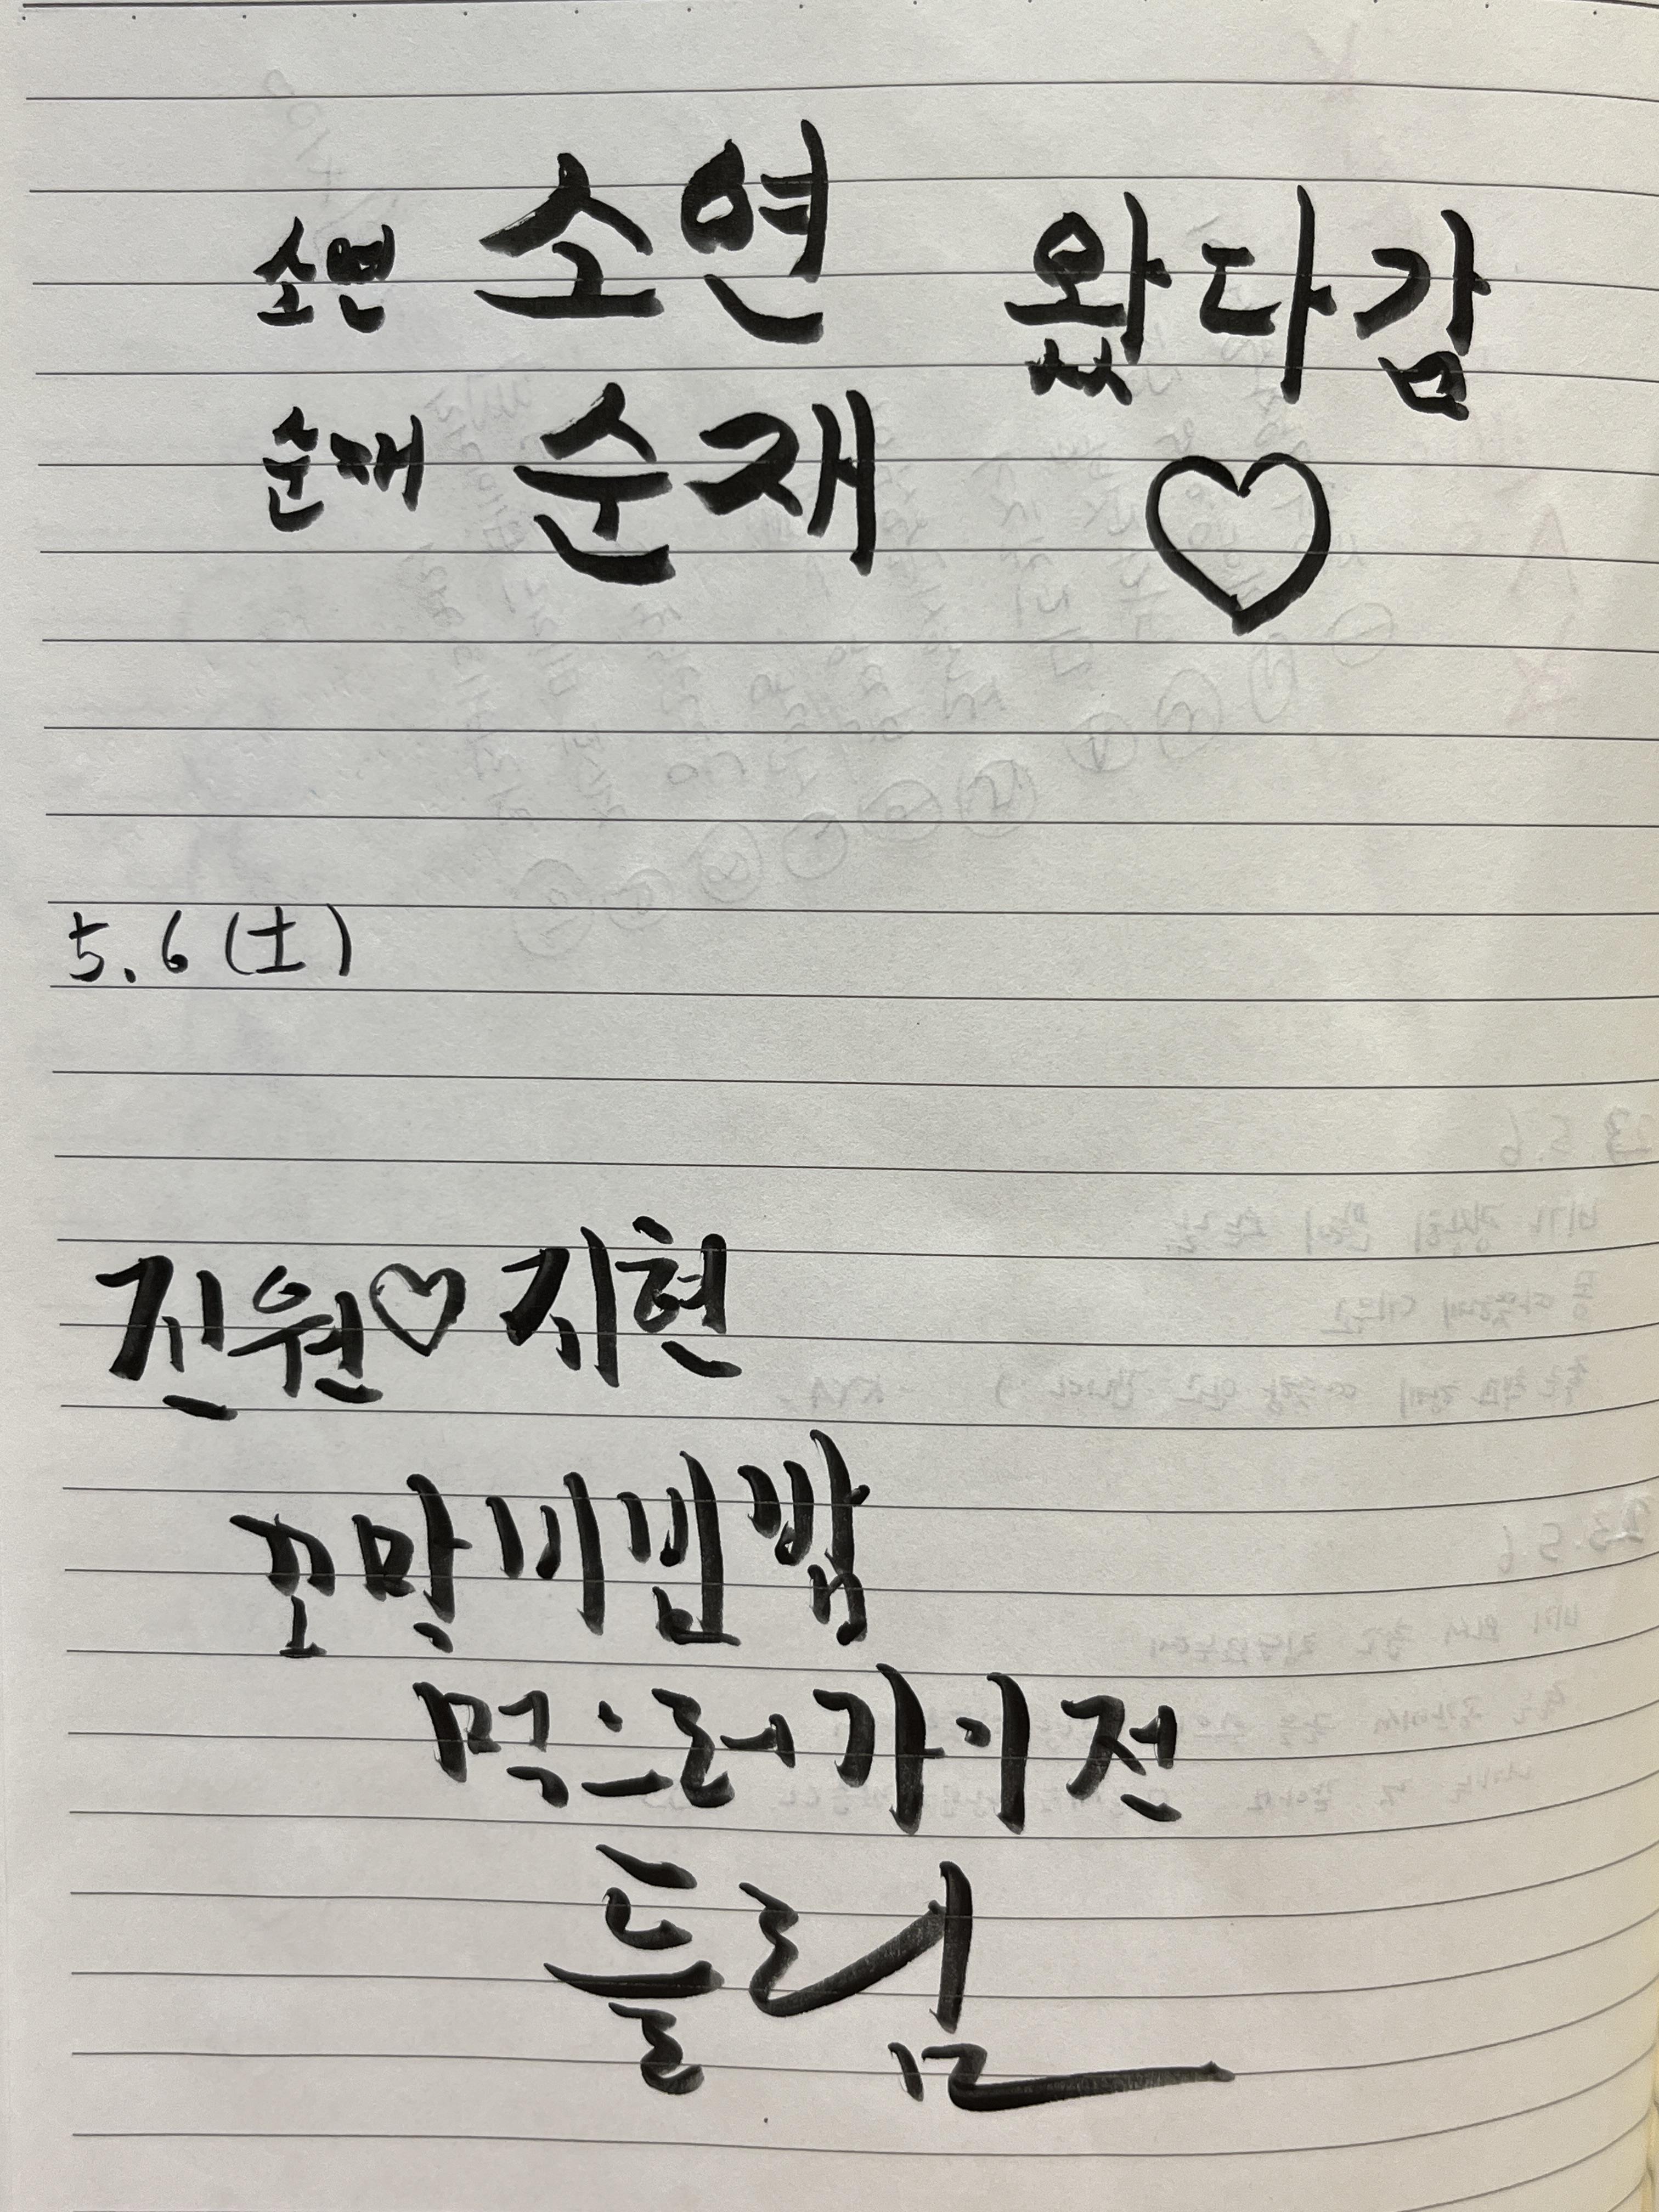 소연 소연 왔다감
순재 순재 ♡
5.6(土)
진원♡지현
꼬막비빔밥
먹으러가기전
들림